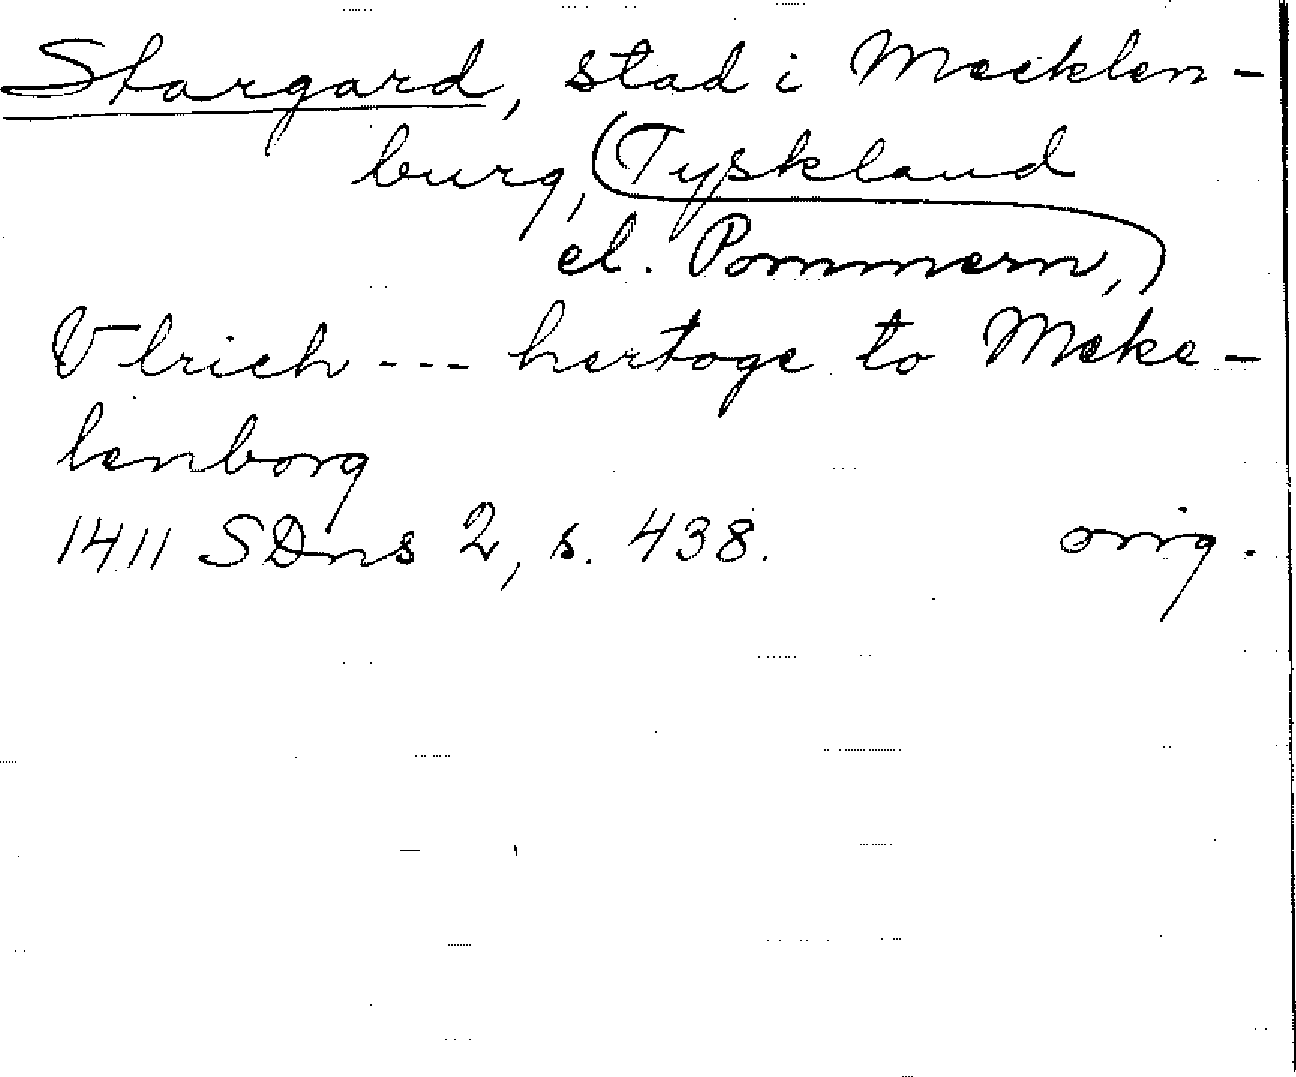 Stargard, stad i Mecklen-
burg, (Tyskland
el. Pommern,)
Vlrich --- hertoge to Meke-
lenborg
1411 SDns 2, s. 438. orig.